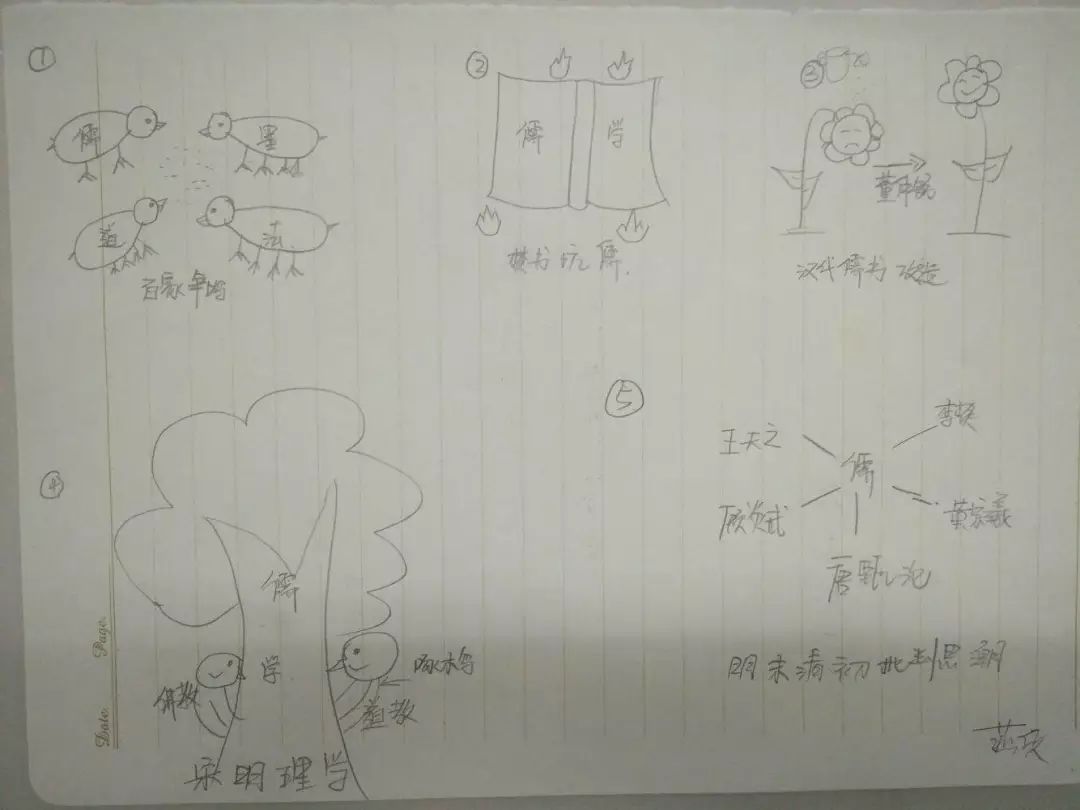 ①
儒
墨
道
法
百家争鸣
②
儒 学
焚书坑儒.
③
董仲舒
汉代儒书改造
④
儒
学
佛教
啄木鸟
道教
宋明理学
⑤
王夫之
李贽
儒
顾炎武
黄宗羲
唐甄
明末清初批判思潮
Page.
Date.